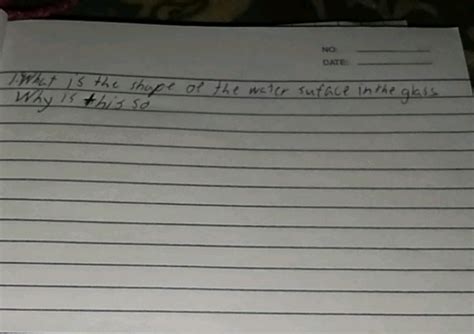 NO:
DATE:
1. What is the shape of the water suface in the glass
Why is this so